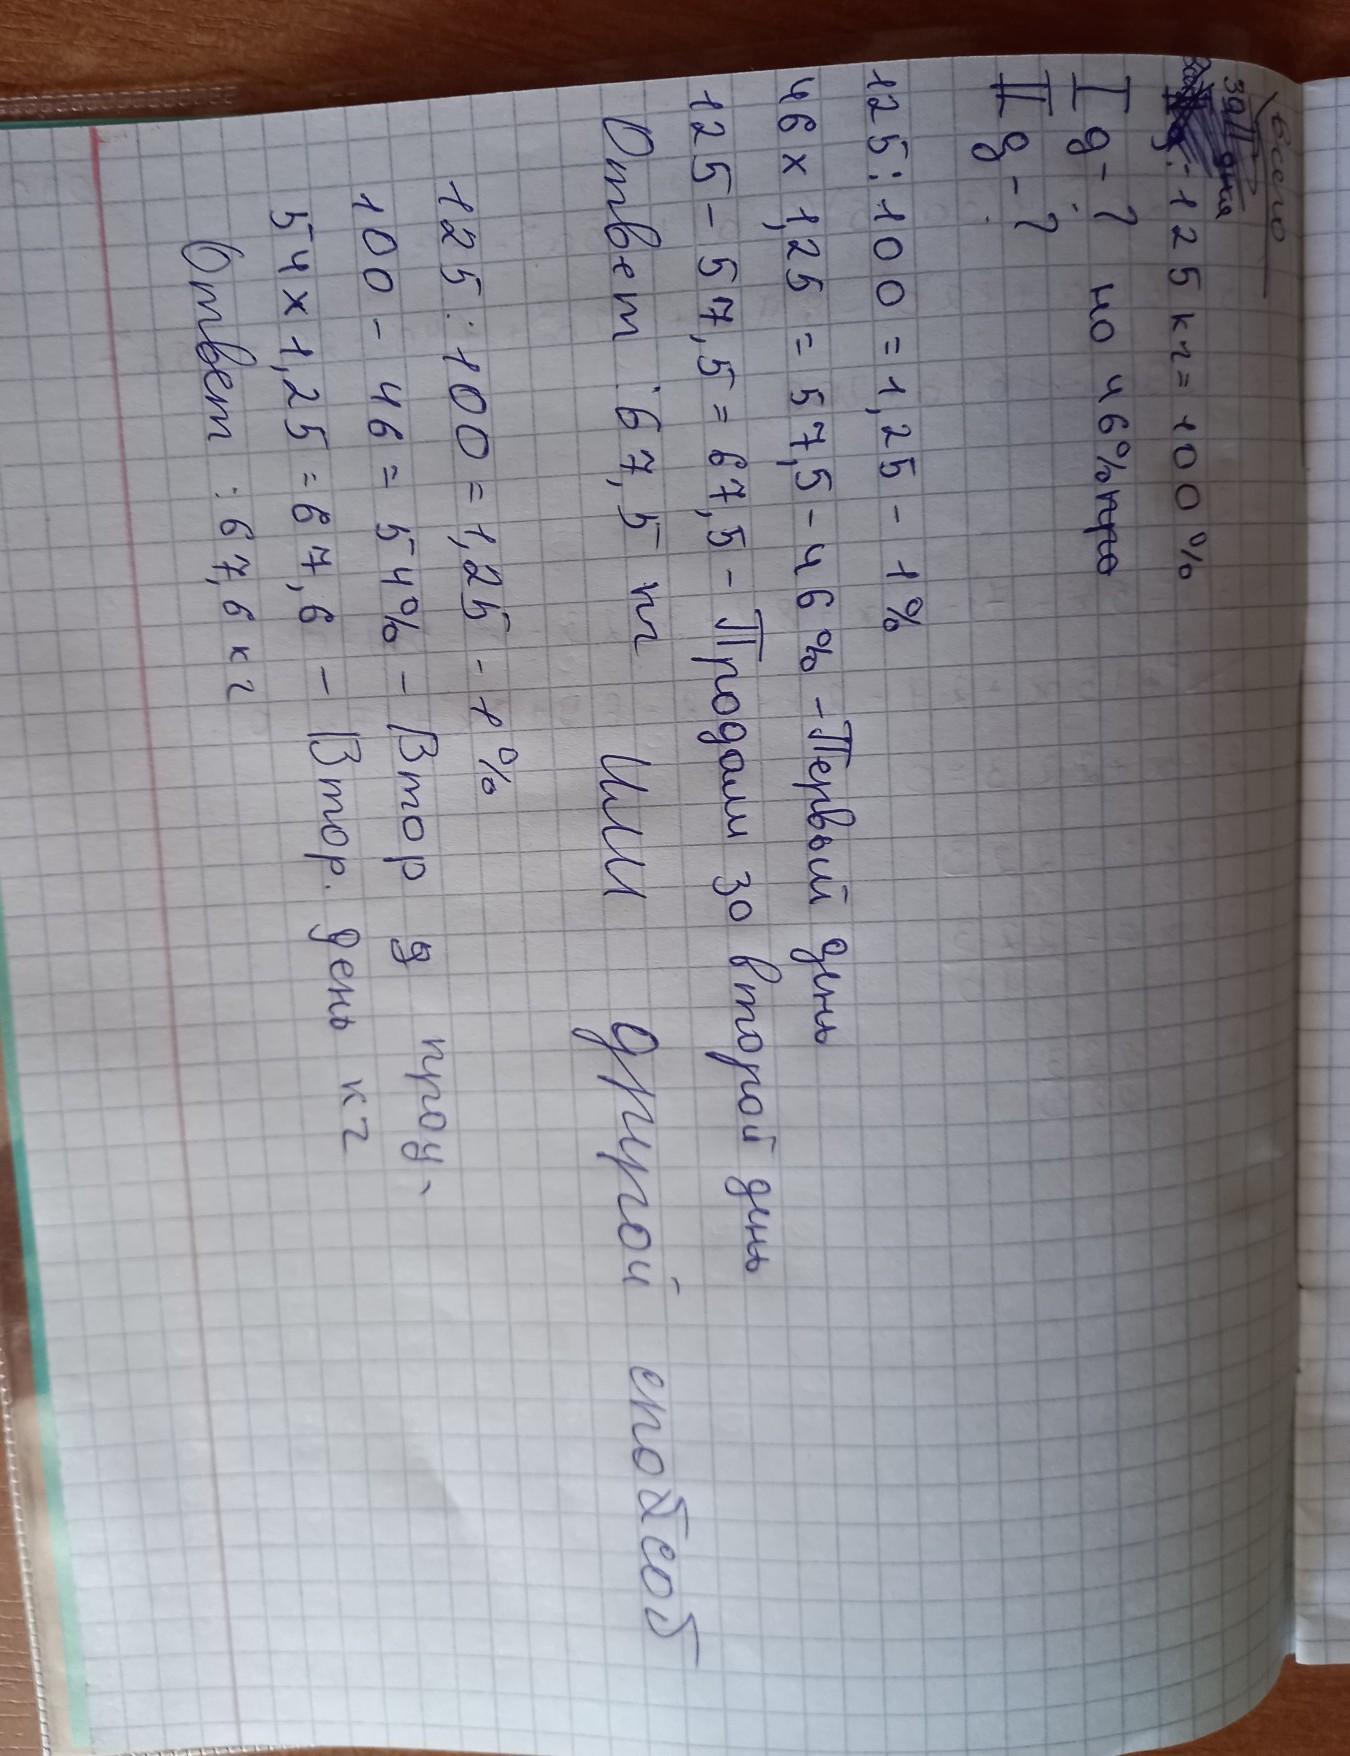 Всего
за II дня
: 125 кг = 100%
I д - ? но 46% про
II д - ?
125 : 100 = 1,25 - 1%
46 х 1,25 = 57,5 - 46% - Первый день
125 - 57,5 = 67,5 - Продали за второй день
Ответ : 67,5 кг Или другой способ
125 : 100 = 1,25 - 1%
100 - 46 = 54% - Втор д
54 х 1,25 = 67,6 - Втор. день кг
Ответ : 67,6 кг